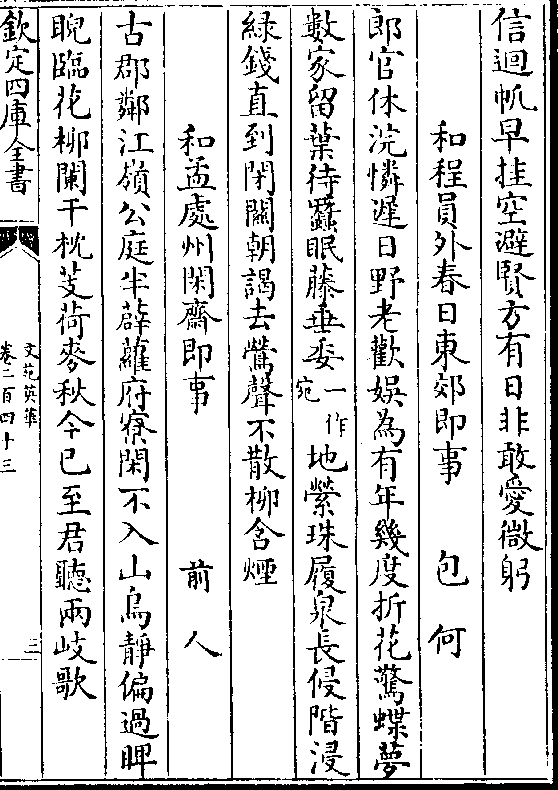 信迴帆早挂空避賢方有日非敢愛微躬
和程員外春日東郊即事 包何
郎官休浣憐遲日野老歡娛為有年幾度折花驚蝶夢
數家留葉待蠶眠藤垂委一作宛地縈珠履泉長侵階浸
綠錢直到閉關朝謁去鶯聲不散柳含煙
和孟虔州閑齋即事 前人
古郡鄰江嶺公庭半薜蘿府寮閑不入山鳥靜偏過睥
睨臨花柳闌干枕芰荷麥秋今已至君聽兩岐歌
欽定四庫全書
文苑英華
卷二百四十三
三